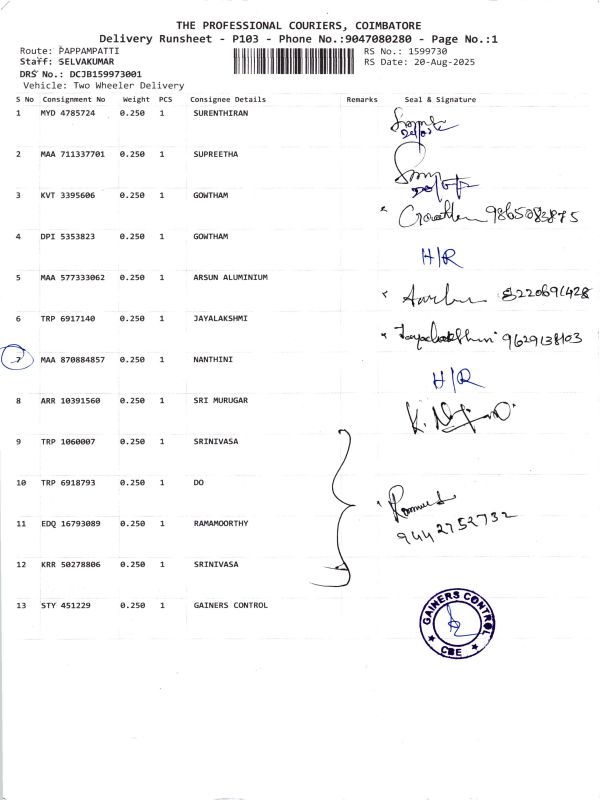 THE PROFESSIONAL COURIERS, COIMBATORE
Delivery Runsheet - P103 - Phone No.:9047080280 - Page No.:1
Route: PAPPAMPATTI RS No.: 1599730
Staff: SELVAKUMAR RS Date: 20-Aug-2025
DRS No.: DCJB159973001
Vehicle: Two Wheeler Delivery
S No Consignment No Weight PCS Consignee Details Remarks Seal & Signature
1 MYD 4785724 0.250 1 SURENTHIRAN
2 MAA 711337701 0.250 1 SUPREETHA
3 KVT 3395606 0.250 1 GOWTHAM
4 DPI 5353823 0.250 1 GOWTHAM H/R
5 MAA 577333062 0.250 1 ARSUN ALUMINIUM 8220691428
6 TRP 6917140 0.250 1 JAYALAKSHMI 9629138103
7 MAA 870884857 0.250 1 NANTHINI H/R
8 ARR 10391560 0.250 1 SRI MURUGAR
9 TRP 1060007 0.250 1 SRINIVASA
10 TRP 6918793 0.250 1 DO
11 EDQ 16793089 0.250 1 RAMAMOORTHY 9442752732
12 KRR 50278806 0.250 1 SRINIVASA
13 STY 451229 0.250 1 GAINERS CONTROL
GAINERS CONTROL
CBE